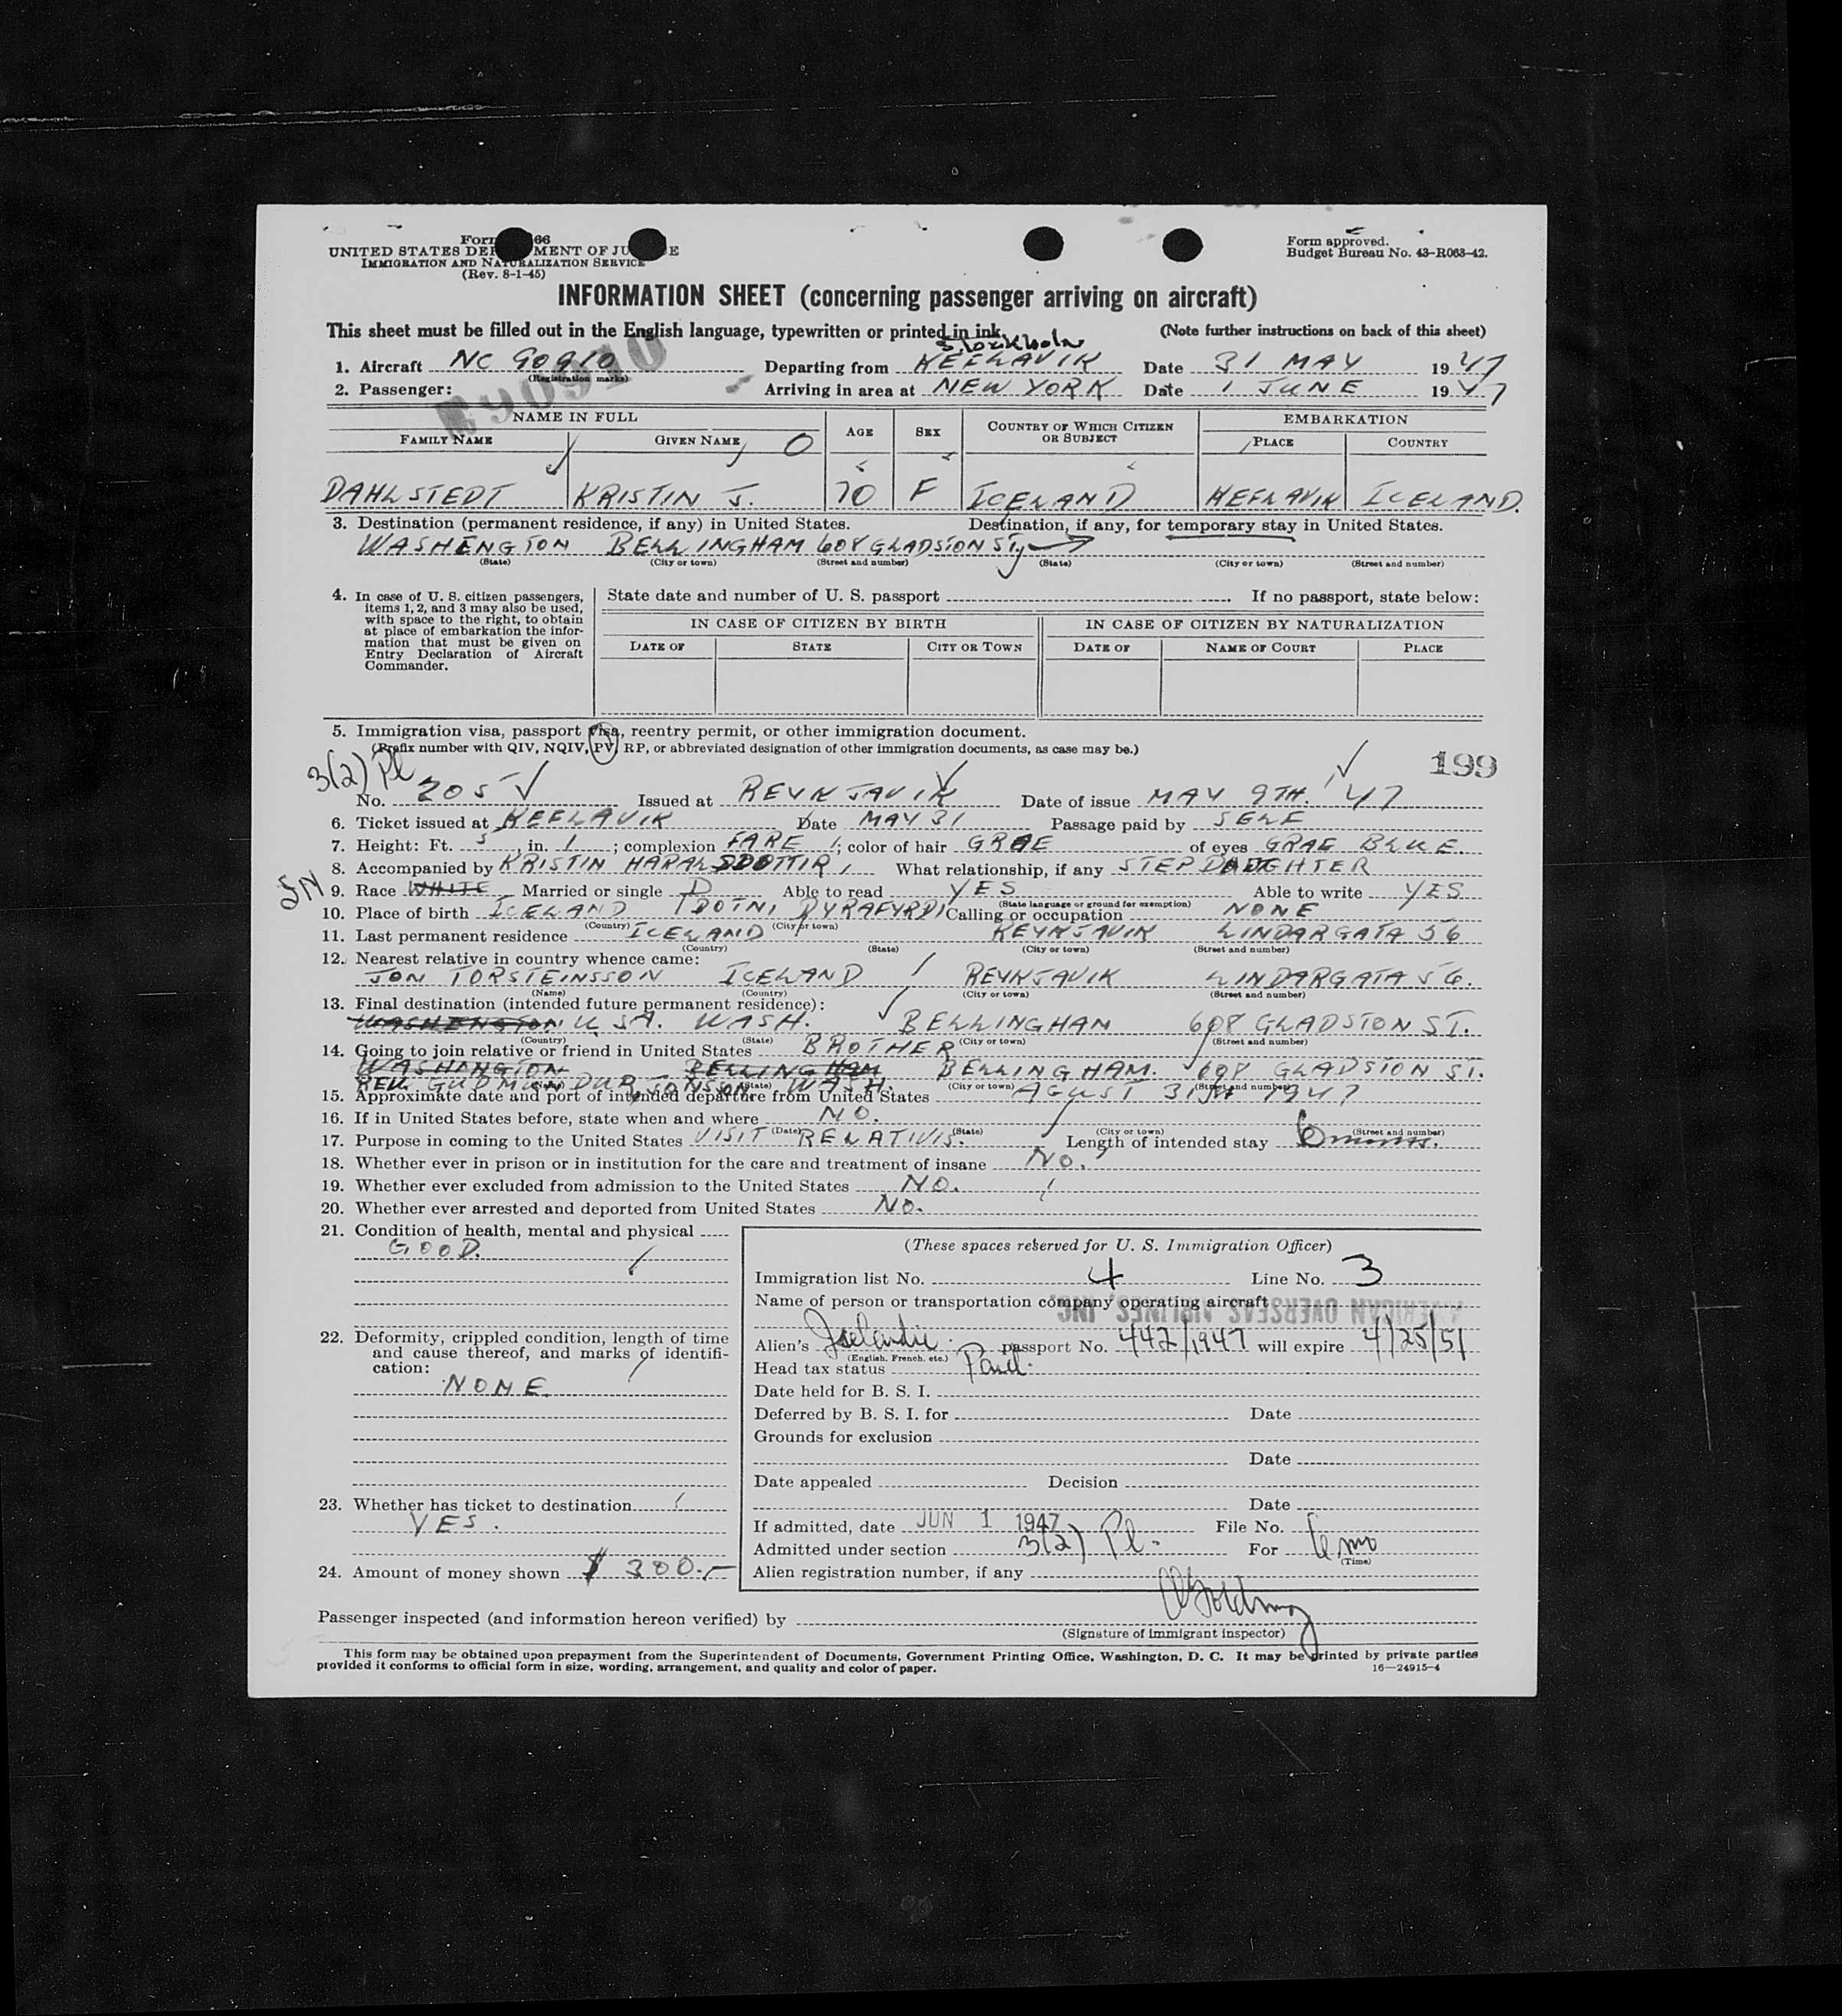 Form 66 Form approved.
UNITED STATES DEP MENT OF JU E Budget Bureau No. 43-R063-42.
IMMIGRATION AND NATURALIZATION SERVICE
(Rev. 8-1-45)
INFORMATION SHEET (concerning passenger arriving on aircraft)
This sheet must be filled out in the English language, typewritten or printed in ink. (Note further instructions on back of this sheet)
Stockholm
1. Aircraft NC 90910 Departing from KEFLAVIK Date 31 MAY 1947
(Registration marks)
N90910
2. Passenger: Arriving in area at NEW YORK Date 1 JUNE 1947
NAME IN FULL AGE SEX COUNTRY OF WHICH CITIZEN OR SUBJECT EMBARKATION
FAMILY NAME GIVEN NAME PLACE COUNTRY
DAHLSTEDT KRISTIN J. 70 F ICELAND KEFLAVIK ICELAND.
3. Destination (permanent residence, if any) in United States. Destination, if any, for temporary stay in United States.
WASHENGTON BELLINGHAM 608 GLADSTON ST.
(State) (City or town) (Street and number) (State) (City or town) (Street and number)
4. In case of U. S. citizen passengers, items 1, 2, and 3 may also be used, with space to the right, to obtain at place of embarkation the information that must be given on Entry Declaration of Aircraft Commander.
State date and number of U. S. passport If no passport, state below:
IN CASE OF CITIZEN BY BIRTH IN CASE OF CITIZEN BY NATURALIZATION
DATE OF STATE CITY OR TOWN DATE OF NAME OF COURT PLACE
5. Immigration visa, passport visa, reentry permit, or other immigration document.
(Prefix number with QIV, NQIV, PV, RP, or abbreviated designation of other immigration documents, as case may be.)
199
3(2) Pl
No. 205 Issued at REYKJAVIK Date of issue MAY 9TH. 47
6. Ticket issued at KEFLAVIK Date MAY 31 Passage paid by SELF
7. Height: Ft. 5, in. 1; complexion FARE; color of hair GRAE of eyes GRAE BLUE.
8. Accompanied by KRISTIN HARALSDOTTIR, What relationship, if any STEPDAUGHTER
9. Race WHITE Married or single D Able to read YES Able to write YES
(State language or ground for exemption)
10. Place of birth ICELAND (BOTNI DYRAFYRDI) Calling or occupation NONE
(Country) (City or town)
11. Last permanent residence ICELAND REYKJAVIK LINDARGATA 56
(Country) (State) (City or town) (Street and number)
12. Nearest relative in country whence came:
JON TORSTEINSSON ICELAND REYKJAVIK LINDARGATA 56.
(Name) (Country) (City or town) (Street and number)
13. Final destination (intended future permanent residence):
WASHENGTON U.S.A. WASH. BELLINGHAM 608 GLADSTON ST.
(Country) (State) (City or town) (Street and number)
14. Going to join relative or friend in United States BROTHER
WASHINGTON BELLINGHAM BELLINGHAM. 608 GLADSTON ST.
REV. GUDMUNDUR JONSSON, WASH.
(Name) (State) (City or town) (Street and number)
15. Approximate date and port of intended departure from United States AGUST 31st 1947
16. If in United States before, state when and where NO.
(Date) (State) (City or town) (Street and number)
17. Purpose in coming to the United States VISIT RELATIVIS. Length of intended stay 6
18. Whether ever in prison or in institution for the care and treatment of insane NO.
19. Whether ever excluded from admission to the United States NO.
20. Whether ever arrested and deported from United States NO.
21. Condition of health, mental and physical
GOOD.
22. Deformity, crippled condition, length of time and cause thereof, and marks of identification:
NONE.
23. Whether has ticket to destination
YES.
24. Amount of money shown $ 300.-
(These spaces reserved for U. S. Immigration Officer)
Immigration list No. 4 Line No. 3
Name of person or transportation company operating aircraft
AMERICAN OVERSEAS AIRLINES, INC.
Alien's Icelandic passport No. 442/1947 will expire 4/25/51
(English, French, etc.)
Head tax status Paid.
Date held for B. S. I.
Deferred by B. S. I. for Date
Grounds for exclusion
Date
Date appealed Decision
Date
If admitted, date JUN 1 1947 File No.
Admitted under section 3(2) Pl. For 6 mo
(Time)
Alien registration number, if any
Passenger inspected (and information hereon verified) by
(Signature of immigrant inspector)
This form may be obtained upon prepayment from the Superintendent of Documents, Government Printing Office, Washington, D. C. It may be printed by private parties
provided it conforms to official form in size, wording, arrangement, and quality and color of paper. 16—24915-4